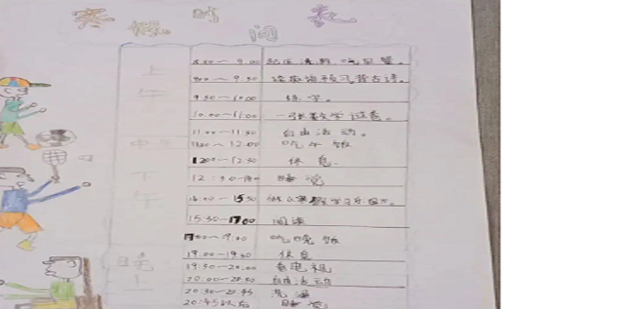 寒假时间表
上午
8:30~9:00 起床洗漱吃早餐。
9:00~9:30 读
9:30~10:00 练字。
10:00~11:00 一张数学试卷。
11:00~11:30 自由活动。
中午
11:30~12:00 吃午饭
12:00~12:30 休息
12:30~14:00 睡觉
下午
15:30~17:00 阅读
~19:00 吃晚饭
晚上
19:00~19:30 休息
19:30~20:00 看电视
20:00~20:30 自由活动
20:30~20:45 洗澡
20:45以后 睡觉